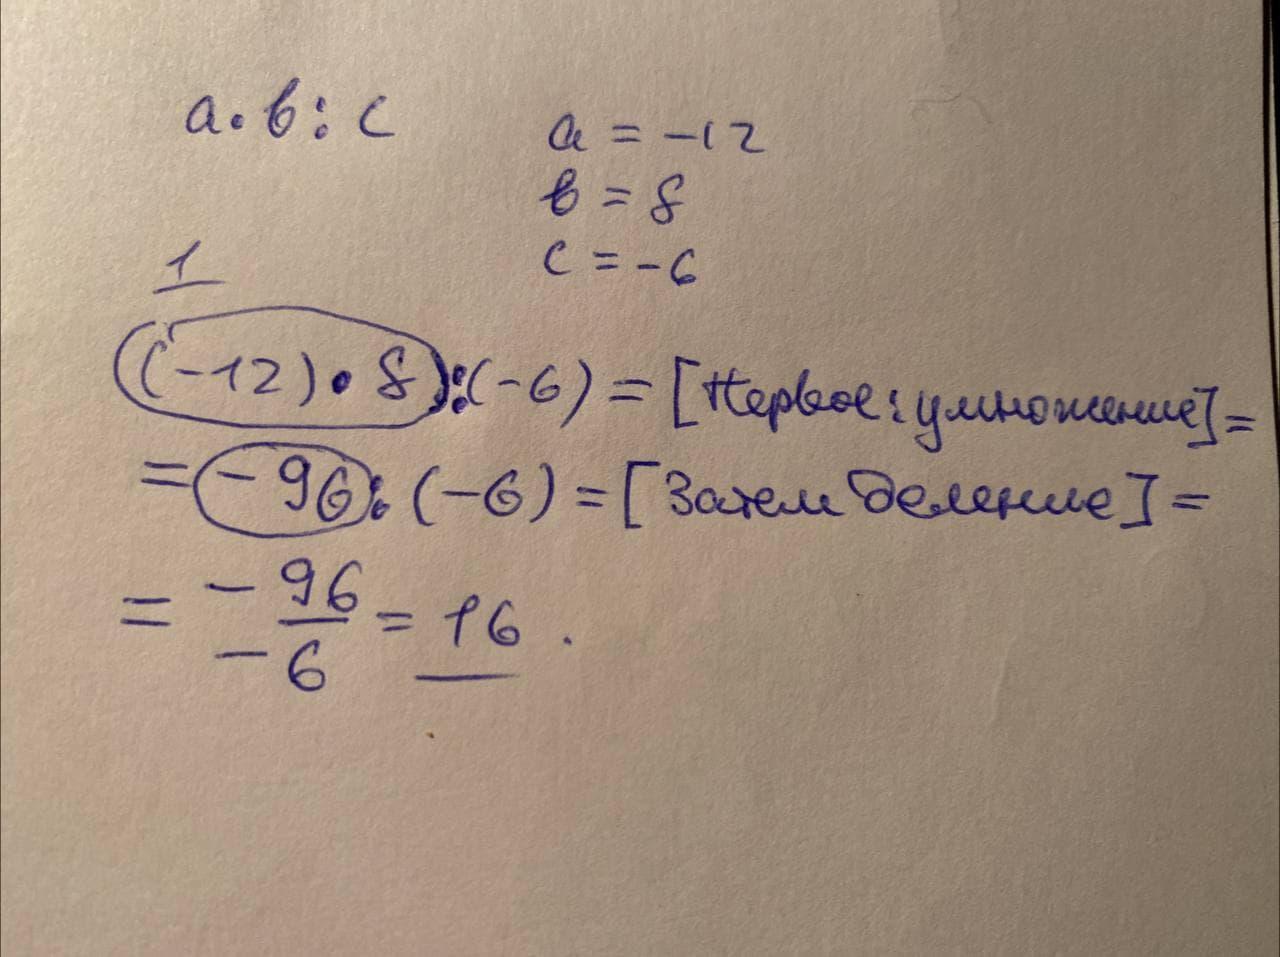 а·в:с
а = -12
в = 8
с = -6
1
(-12)·8:(-6) = [Первое: умножение] =
= -96:(-6) = [Затем деление] =
= -96/-6 = 16.